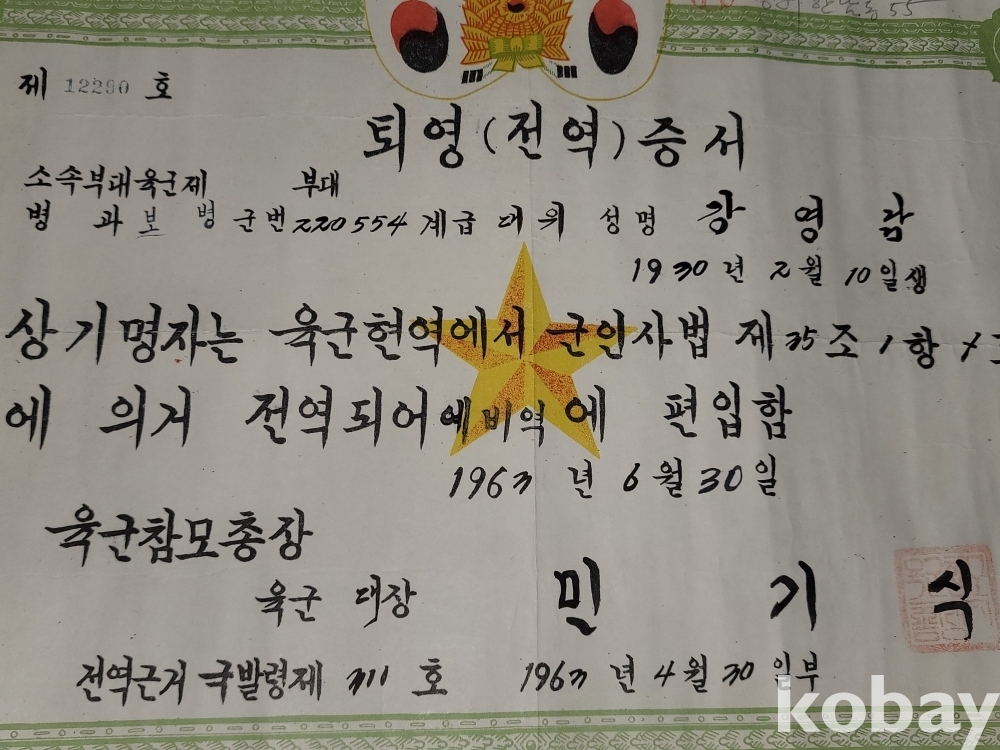 55
제 12290 호
퇴영(전역)증서
소속부대육군제 부대
병 과 보 병 군번 220554 계급 대위 성명 강 영 감
1930년 2월 10일생
상기명자는 육군현역에서 군인사법 제 35조 1항
에 의거 전역되어 예비역 에 편입함
1963년 6월 30일
육군참모총장
육군 대장 민 기 식
전역근거 국발령제 311 호 1963년 4월 30일부
kobay